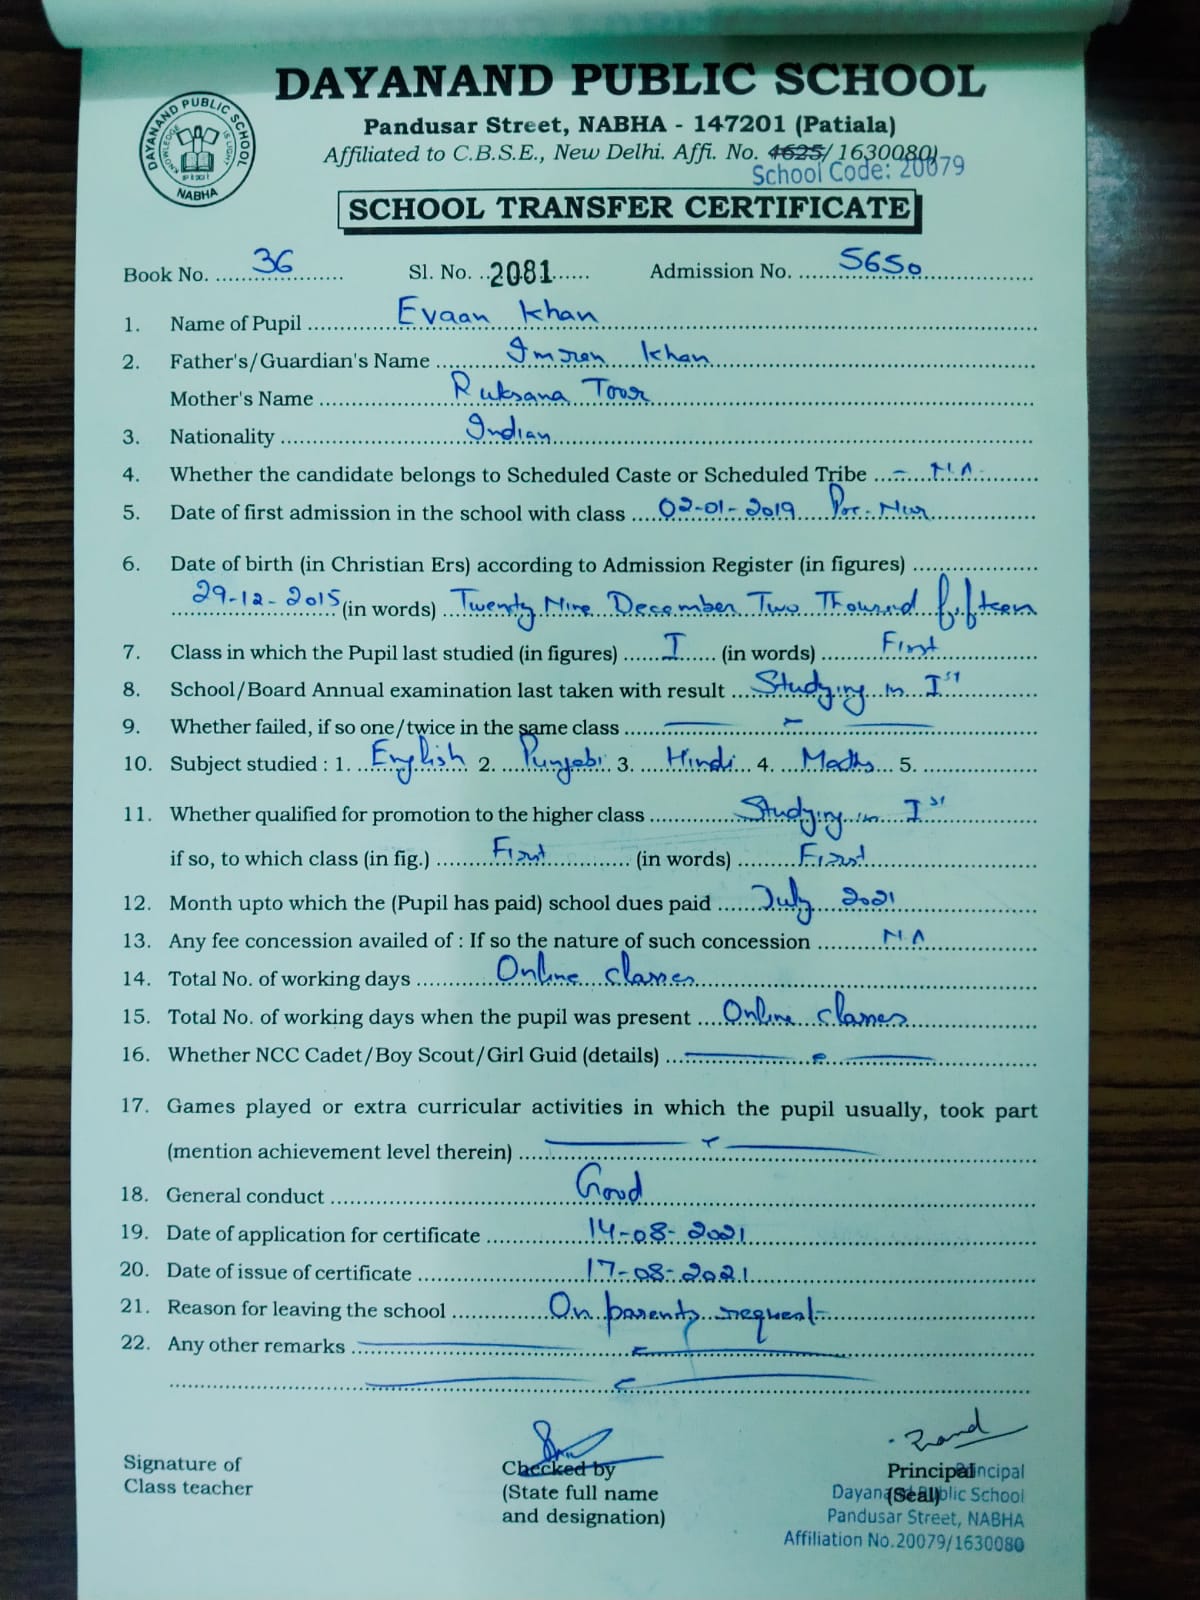 DAYANAND PUBLIC SCHOOL
DAYANAND PUBLIC SCHOOL
KNOWLEDGE IS LIGHT
NABHA
Pandusar Street, NABHA - 147201 (Patiala)
Affiliated to C.B.S.E., New Delhi. Affi. No. 4625/ 1630080)
School Code: 20079
SCHOOL TRANSFER CERTIFICATE
Book No. 36 Sl. No. 2081 Admission No. 5650
1. Name of Pupil Evaan Khan
2. Father's/Guardian's Name Imran Khan
Mother's Name Ruksana Toor
3. Nationality Indian
4. Whether the candidate belongs to Scheduled Caste or Scheduled Tribe – N.A.
5. Date of first admission in the school with class 02-01-2019 Pre-Nur
6. Date of birth (in Christian Ers) according to Admission Register (in figures)
29-12-2015 (in words) Twenty Nine December Two Thousand fifteen
7. Class in which the Pupil last studied (in figures) I (in words) First
8. School/Board Annual examination last taken with result Studying in Ist
9. Whether failed, if so one/twice in the same class
10. Subject studied : 1. English 2. Punjabi 3. Hindi 4. Maths 5.
11. Whether qualified for promotion to the higher class Studying in Ist
if so, to which class (in fig.) First (in words) First
12. Month upto which the (Pupil has paid) school dues paid July 2021
13. Any fee concession availed of : If so the nature of such concession NA
14. Total No. of working days Online classes
15. Total No. of working days when the pupil was present Online classes
16. Whether NCC Cadet/Boy Scout/Girl Guid (details)
17. Games played or extra curricular activities in which the pupil usually, took part
(mention achievement level therein)
18. General conduct Good
19. Date of application for certificate 14-08-2021
20. Date of issue of certificate 17-08-2021
21. Reason for leaving the school On parents request
22. Any other remarks
Signature of
Class teacher
Checked by
(State full name
and designation)
Principal
(Seal)
Principal
Dayanand Public School
Pandusar Street, NABHA
Affiliation No.20079/1630080